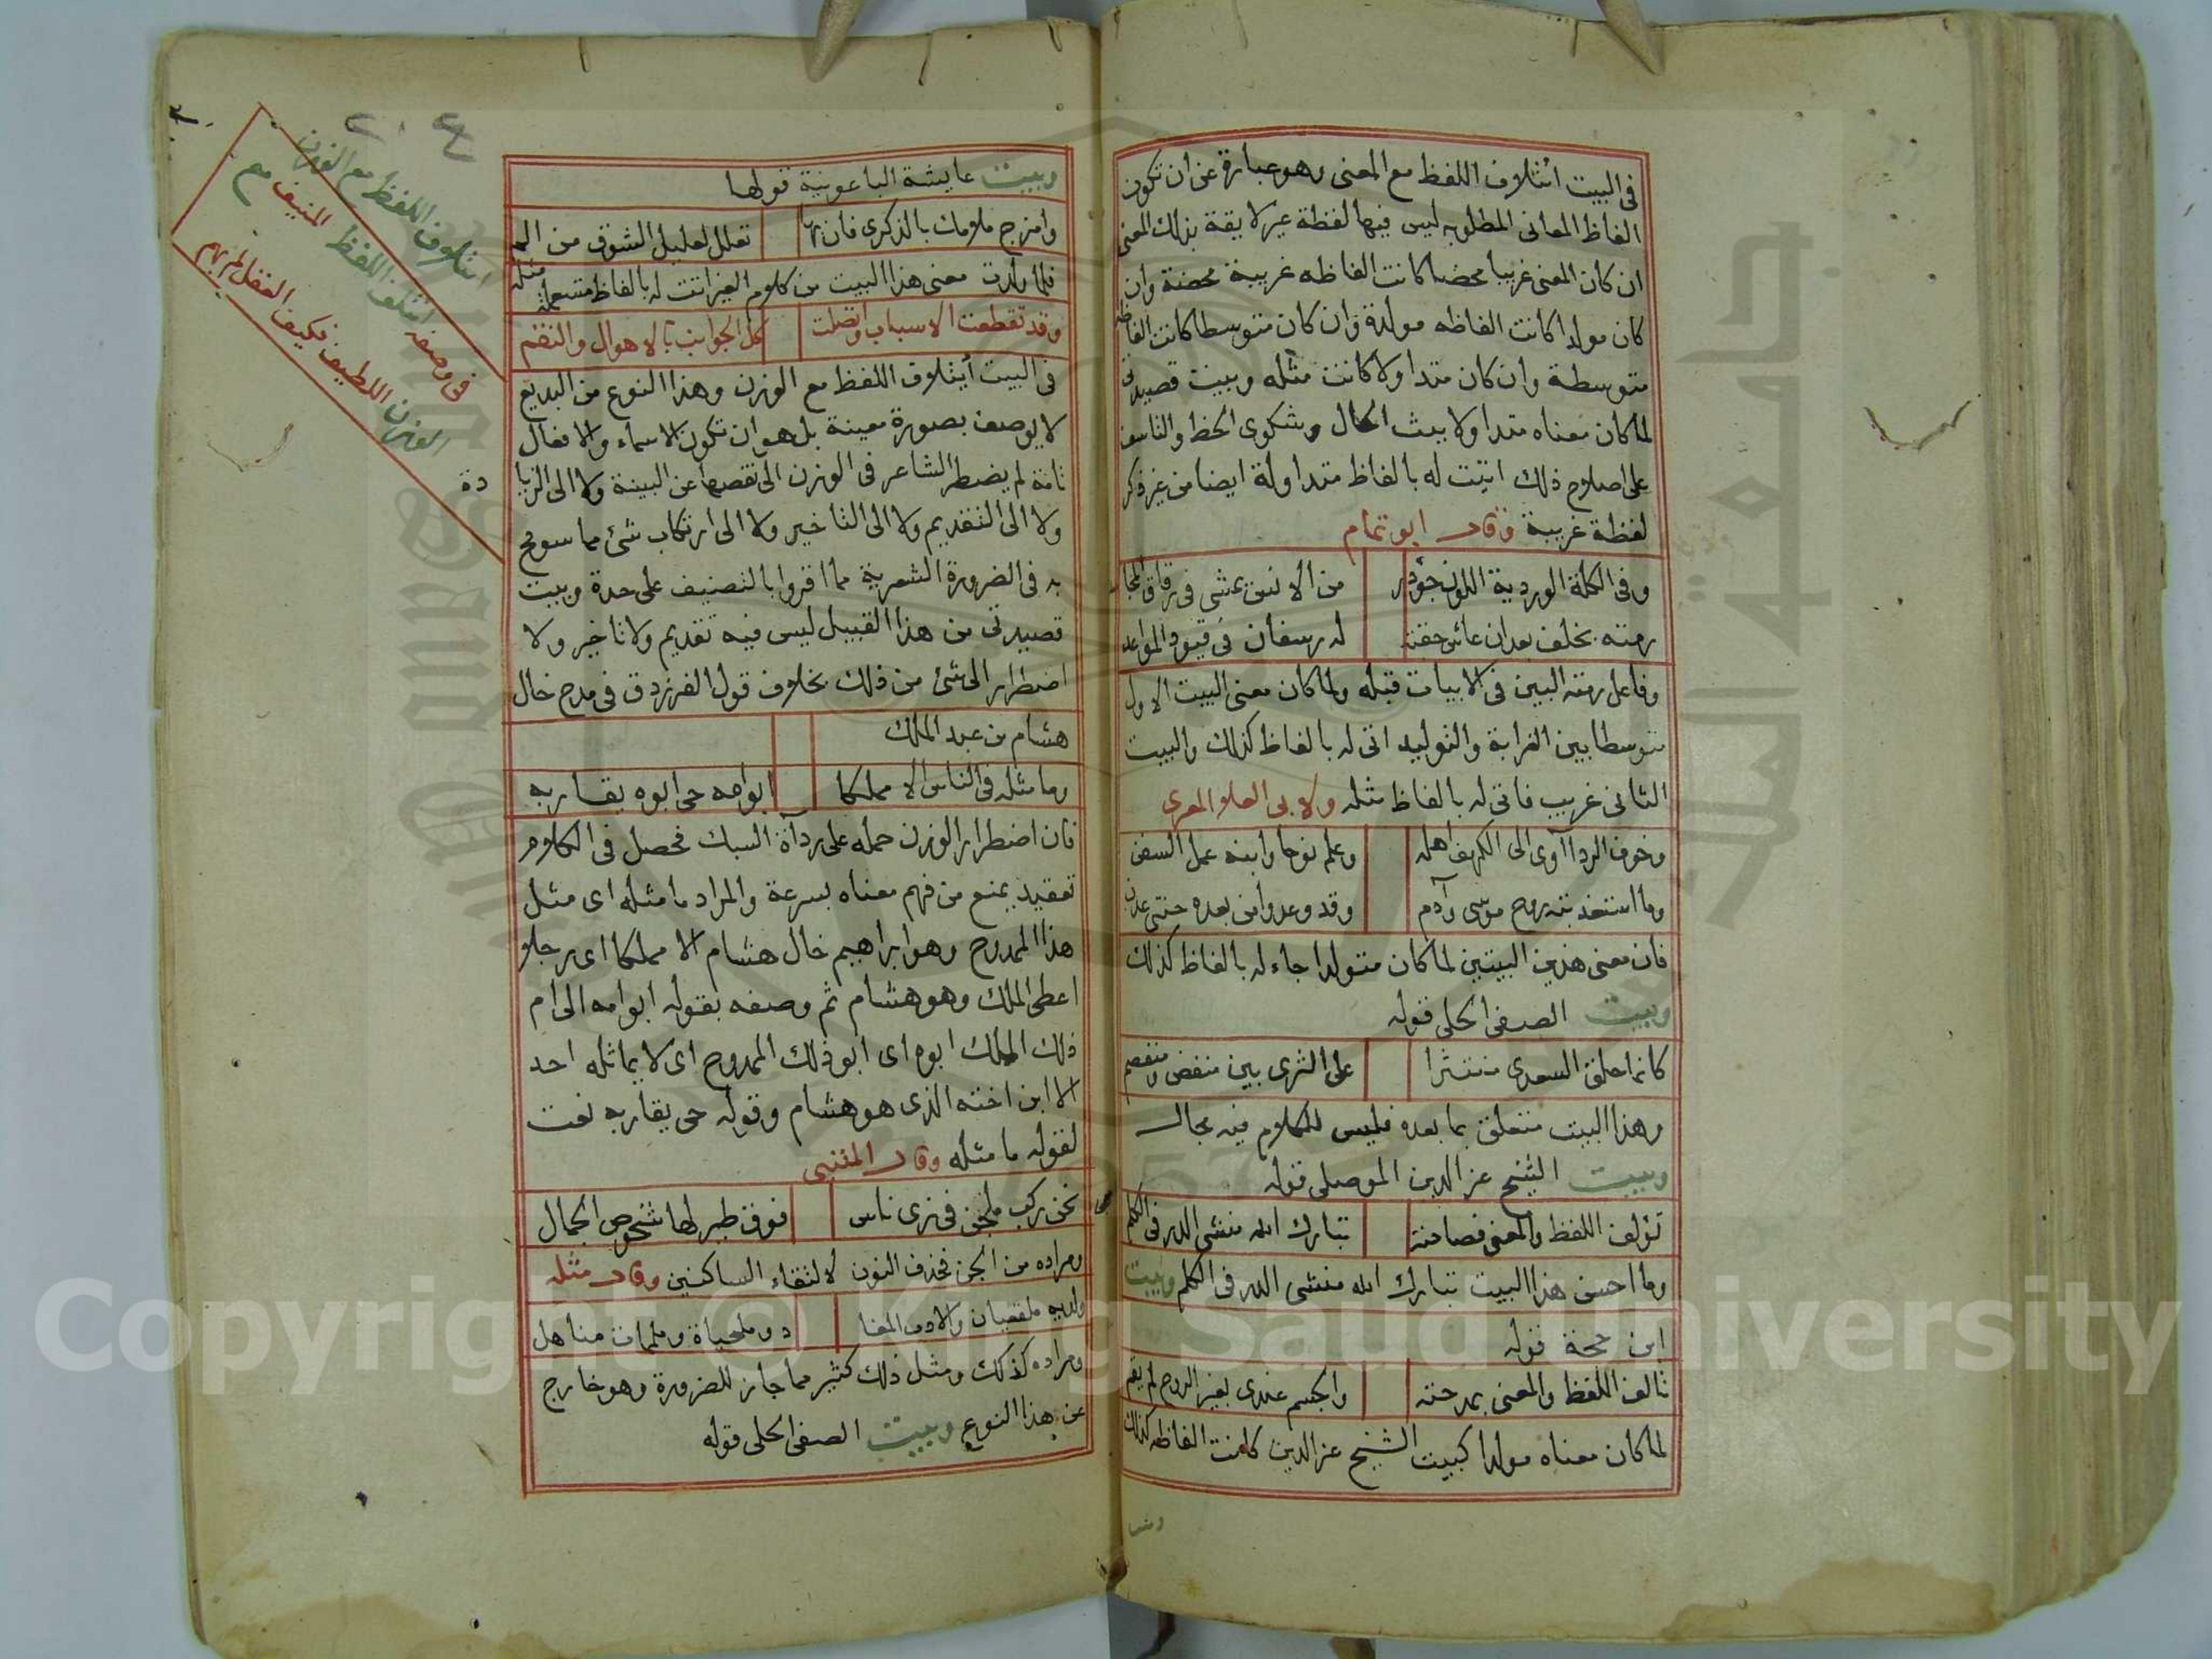 في البيت ائتلاف اللفظ مع المعنى وهو عبارة عن ان تكون
الفاظ المعانى المطلوبه ليس فيها لفظة غير لايقة بذلك المعنى
ان كان المعنى غريبا محضا كانت الفاظه غريبة محضة وان
كان مولدا كانت الفاظه مولدة وان كان متوسطا كانت الفاظه
متوسطة وان كان متداولا كانت مثله وبيت قصيدتى
لما كان معناه متداولا ببث الحال وشكوى الحظ والتاسف
على اصلاح ذلك اتيت له بالفاظ متداولة ايضا من غير ذكر
لفظة غريبة وقال ابو تمام
وفى الكلة الوردية اللون جؤذر من الانس يمشى فى رقاق المجاسد
رمته بخلف بعد ان عاش حقبة له رسفان فى قيود المواعد
وفاعل رمته البين فى الابيات قبله ولما كان معنى البيت الاول
متوسطا بين الغرابة والتوليد اتى له بالفاظ كذلك والبيت
الثانى غريب فاتى له بالفاظ مثله ولابى العلا المعرى
وخوف الردا آوى الى الكهف اهله وعلم نوحا وابنه عمل السفن
وما استعذبته روح موسى وآدم وقد وعدوا من بعده جنتى عدن
فان معنى هذين البيتين لما كان متولدا جاء له بالفاظ كذلك
وبيت الصفى الحلى قوله
كانما حلق السعدى منتثرا على الثرى بين منفض ومنفصم
وهذا البيت متعلق بما بعده فليس للكلام فيه مجال
وبيت الشيخ عز الدين الموصلى قوله
تؤلف اللفظ والمعنى فصاحته تبارك الله منشى الدر فى الكلم
وما احسن هذا البيت تبارك الله منشى الدر فى الكلم وبيت
ابن حجة قوله
تالف اللفظ والمعنى بمدحته والجسم عندى بغير الروح لم يقم
لما كان معناه مولدا كبيت الشيخ عز الدين كانت الفاظه كذلك
وبيت
٢٠٤
ائتلاف اللفظ مع الوزن
فى وصفه ائتلف اللفظ المنيف مع
الوزن اللطيف فكيف العقل لم يهم
وبيت عايشة الباعونية قولها
وامزج ملامك بالذكرى فان بها تعللا لعليل الشوق من الم
فلما رات معنى هذا البيت من كلام الغير اتت له بالفاظ مستعملة مثله
وقد تقطعت الاسباب واتصلت كل الجوانب بالاهوال والنقم
فى البيت ائتلاف اللفظ مع الوزن وهذا النوع من البديع
لا يوصف بصورة معينة بل هو ان تكون الاسماء والافعال
تامة لم يضطر الشاعر فى الوزن الى نقصها عن البينة ولا الى الزيادة
ولا الى التقديم ولا الى التاخير ولا الى ارتكاب شئ مما سومح
به فى الضرورة الشعرية مما افردوا بالتصنيف على حدة وبيت
قصيدتى من هذا القبيل ليس فيه تقديم ولا تاخير ولا
اضطرار الى شئ من ذلك بخلاف قول الفرزدق فى مدح خال
هشام بن عبد الملك
وما مثله فى الناس الا مملكا ابو امه حى ابوه يقاربه
فان اضطرار الوزن حمله على رداءة السبك فحصل فى الكلام
تعقيد يمنع من فهم معناه بسرعة والمراد ما مثله اى مثل
هذا الممدوح وهو ابراهيم خال هشام الا مملكا اى رجلا
اعطى الملك وهو هشام ثم وصفه بقوله ابو امه الى ام
ذلك الملك ابوه اى ابو ذلك الممدوح اى لا يماثله احد
الا ابن اخته الذى هو هشام وقوله حى يقاربه نعت
لقوله ما مثله وقال المتنبى
نحن ركب ملجن فى زى ناس فوق طير لها شخوص الجمال
ومراده من الجن فحذف النون لالتقاء الساكنين وقال مثله
ولديه ملعقيان والادب المفا د وملحياة وملممات مناهل
ومراده كذلك ومثل ذلك كثير مما جاز للضرورة وهو خارج
عن هذا النوع وبيت الصفى الحلى قوله
Copyright © King Saud University